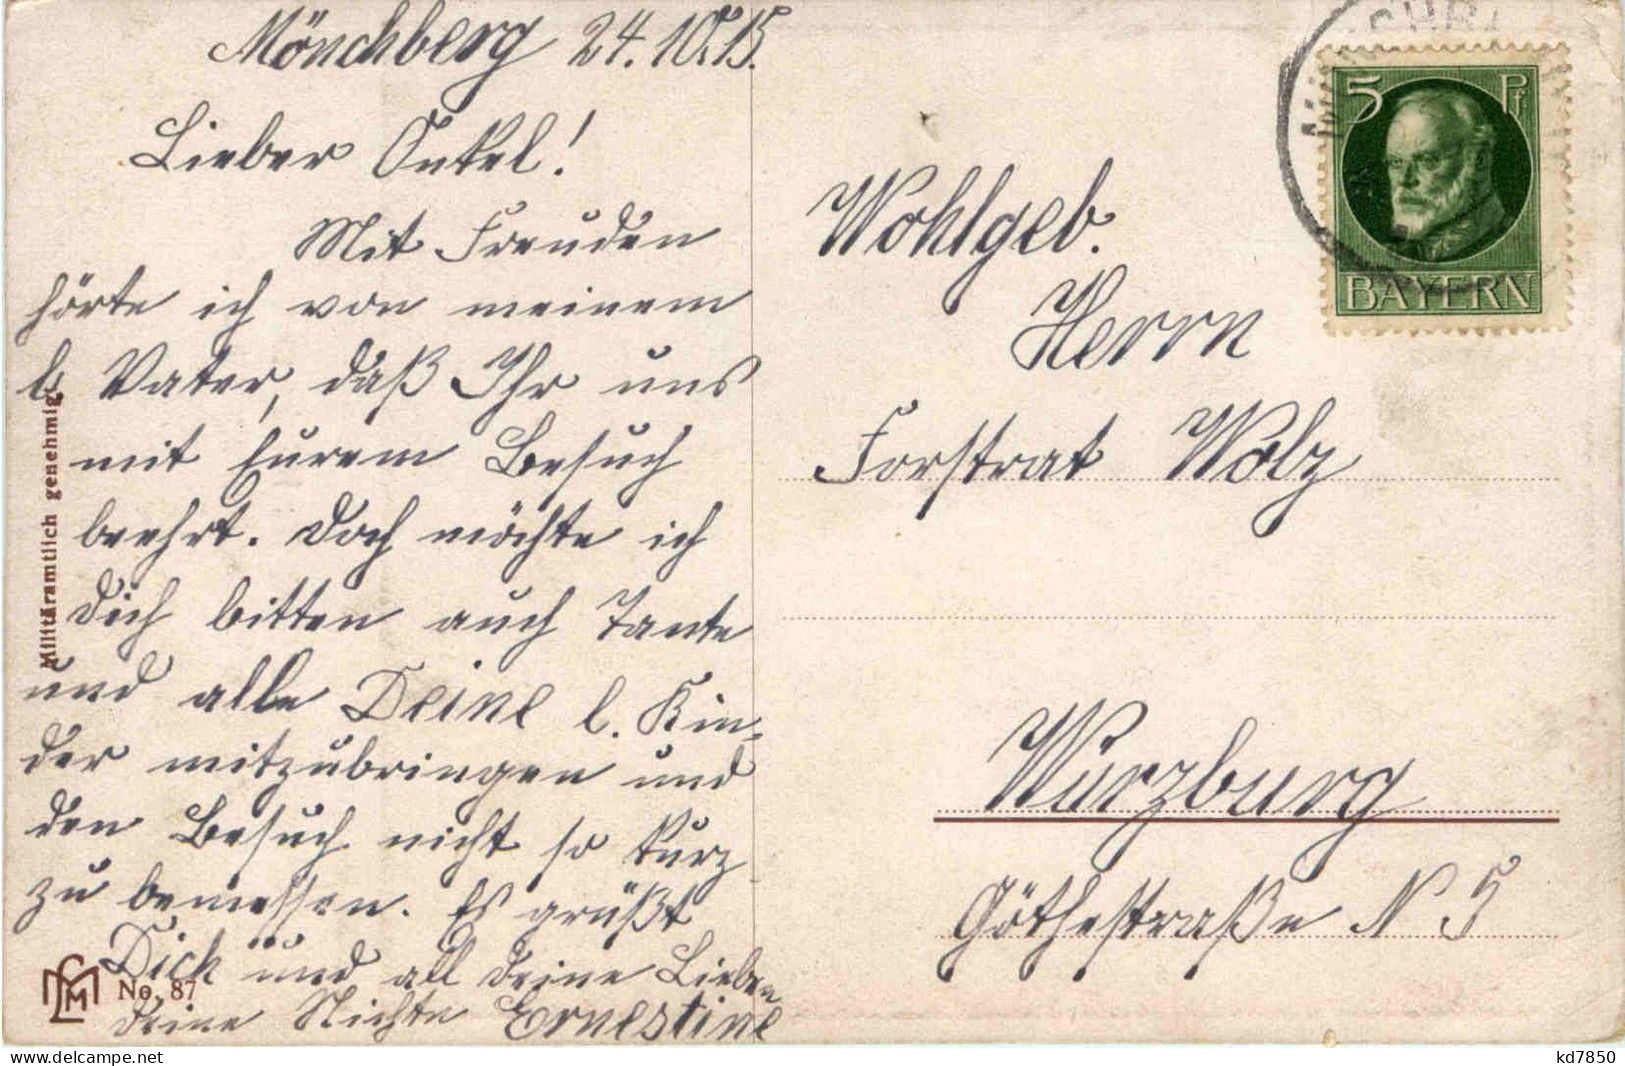 Mönchberg 24.10.15.
Lieber Onkel!
Mit Freuden
hörte ich von meinem
lb. Vater, daß Ihr uns
mit Eurem Besuch
beehrt. Doch möchte ich
Dich bitten auch Tante
und alle Deine l. Kin-
der mitzubringen und
den Besuch nicht so kurz
zu bemessen. Es grüßt
Dich und all deine Lieben
deine Nichte Ernestine
Militäramtlich genehmigt
No. 87
5 Pf
BAYERN
Wohlgeb.
Herrn
Forstrat Wolz
Würzburg
Göthestraße N 5
kd7850